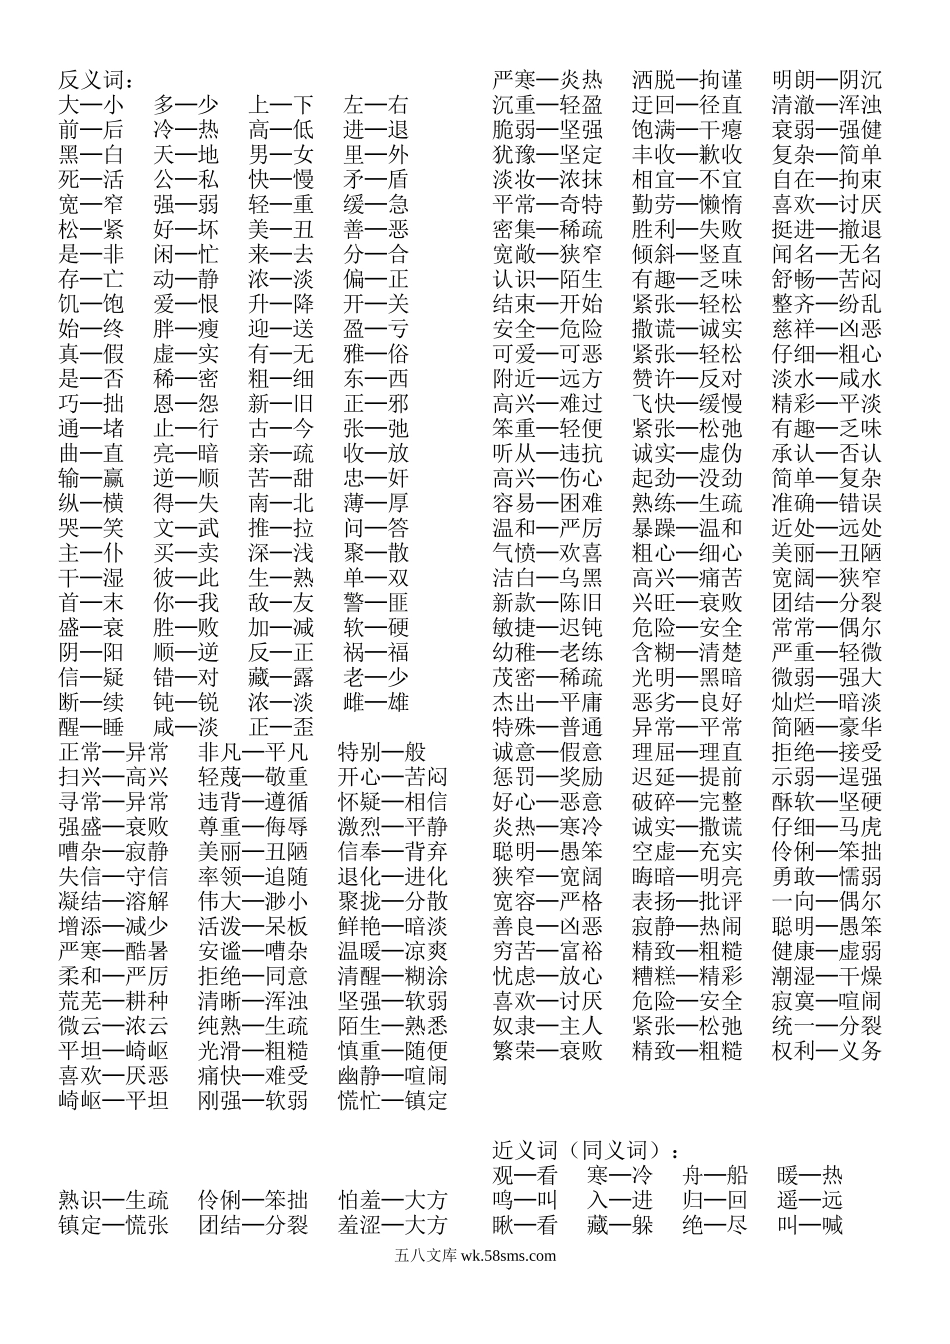 反义词：
大—小 多—少 上—下 左—右
前—后 冷—热 高—低 进—退
黑—白 天—地 男—女 里—外
死—活 公—私 快—慢 矛—盾
宽—窄 强—弱 轻—重 缓—急
松—紧 好—坏 美—丑 善—恶
是—非 闲—忙 来—去 分—合
存—亡 动—静 浓—淡 偏—正
饥—饱 爱—恨 升—降 开—关
始—终 胖—瘦 迎—送 盈—亏
真—假 虚—实 有—无 雅—俗
是—否 稀—密 粗—细 东—西
巧—拙 恩—怨 新—旧 正—邪
通—堵 止—行 古—今 张—弛
曲—直 亮—暗 亲—疏 收—放
输—赢 逆—顺 苦—甜 忠—奸
纵—横 得—失 南—北 薄—厚
哭—笑 文—武 推—拉 问—答
主—仆 买—卖 深—浅 聚—散
干—湿 彼—此 生—熟 单—双
首—末 你—我 敌—友 警—匪
盛—衰 胜—败 加—减 软—硬
阴—阳 顺—逆 反—正 祸—福
信—疑 错—对 藏—露 老—少
断—续 钝—锐 浓—淡 雌—雄
醒—睡 咸—淡 正—歪
正常—异常 非凡—平凡 特别—般
扫兴—高兴 轻蔑—敬重 开心—苦闷
寻常—异常 违背—遵循 怀疑—相信
强盛—衰败 尊重—侮辱 激烈—平静
嘈杂—寂静 美丽—丑陋 信奉—背弃
失信—守信 率领—追随 退化—进化
凝结—溶解 伟大—渺小 聚拢—分散
增添—减少 活泼—呆板 鲜艳—暗淡
严寒—酷暑 安谧—嘈杂 温暖—凉爽
柔和—严厉 拒绝—同意 清醒—糊涂
荒芜—耕种 清晰—浑浊 坚强—软弱
微云—浓云 纯熟—生疏 陌生—熟悉
平坦—崎岖 光滑—粗糙 慎重—随便
喜欢—厌恶 痛快—难受 幽静—喧闹
崎岖—平坦 刚强—软弱 慌忙—镇定
熟识—生疏 伶俐—笨拙 怕羞—大方
镇定—慌张 团结—分裂 羞涩—大方
严寒—炎热 洒脱—拘谨 明朗—阴沉
沉重—轻盈 迂回—径直 清澈—浑浊
脆弱—坚强 饱满—干瘪 衰弱—强健
犹豫—坚定 丰收—歉收 复杂—简单
淡妆—浓抹 相宜—不宜 自在—拘束
平常—奇特 勤劳—懒惰 喜欢—讨厌
密集—稀疏 胜利—失败 挺进—撤退
宽敞—狭窄 倾斜—竖直 闻名—无名
认识—陌生 有趣—乏味 舒畅—苦闷
结束—开始 紧张—轻松 整齐—纷乱
安全—危险 撒谎—诚实 慈祥—凶恶
可爱—可恶 紧张—轻松 仔细—粗心
附近—远方 赞许—反对 淡水—咸水
高兴—难过 飞快—缓慢 精彩—平淡
笨重—轻便 紧张—松弛 有趣—乏味
听从—违抗 诚实—虚伪 承认—否认
高兴—伤心 起劲—没劲 简单—复杂
容易—困难 熟练—生疏 准确—错误
温和—严厉 暴躁—温和 近处—远处
气愤—欢喜 粗心—细心 美丽—丑陋
洁白—乌黑 高兴—痛苦 宽阔—狭窄
新款—陈旧 兴旺—衰败 团结—分裂
敏捷—迟钝 危险—安全 常常—偶尔
幼稚—老练 含糊—清楚 严重—轻微
茂密—稀疏 光明—黑暗 微弱—强大
杰出—平庸 恶劣—良好 灿烂—暗淡
特殊—普通 异常—平常 简陋—豪华
诚意—假意 理屈—理直 拒绝—接受
惩罚—奖励 迟延—提前 示弱—逞强
好心—恶意 破碎—完整 酥软—坚硬
炎热—寒冷 诚实—撒谎 仔细—马虎
聪明—愚笨 空虚—充实 伶俐—笨拙
狭窄—宽阔 晦暗—明亮 勇敢—懦弱
宽容—严格 表扬—批评 一向—偶尔
善良—凶恶 寂静—热闹 聪明—愚笨
穷苦—富裕 精致—粗糙 健康—虚弱
忧虑—放心 糟糕—精彩 潮湿—干燥
喜欢—讨厌 危险—安全 寂寞—喧闹
奴隶—主人 紧张—松弛 统一—分裂
繁荣—衰败 精致—粗糙 权利—义务
近义词（同义词）：
观—看 寒—冷 舟—船 暖—热
鸣—叫 入—进 归—回 遥—远
瞅—看 藏—躲 绝—尽 叫—喊
五八文库 wk.58sms.com